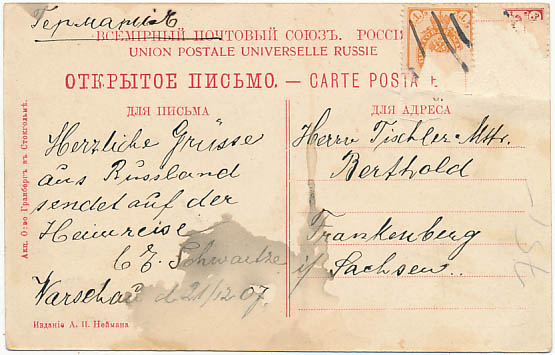 Германія
ВСЕМІРНЫЙ ПОЧТОВЫЙ СОЮЗЪ. РОССІ
UNION POSTALE UNIVERSELLE RUSSIE
ОТКРЫТОЕ ПИСЬМО. — CARTE POSTA E
ДЛЯ ПИСЬМА
Herzliche Grüsse
aus Russland
sendet auf der
Heimreise
Schwartze
Warschau d 21/12 07.
ДЛЯ АДРЕСА
Herrn Tischler-Mstr.
Berthold
Frankenberg
i/ Sachsen..
Акц. О-во Гранбергъ въ Стокгольмѣ.
Изданіе А. П. Неймана